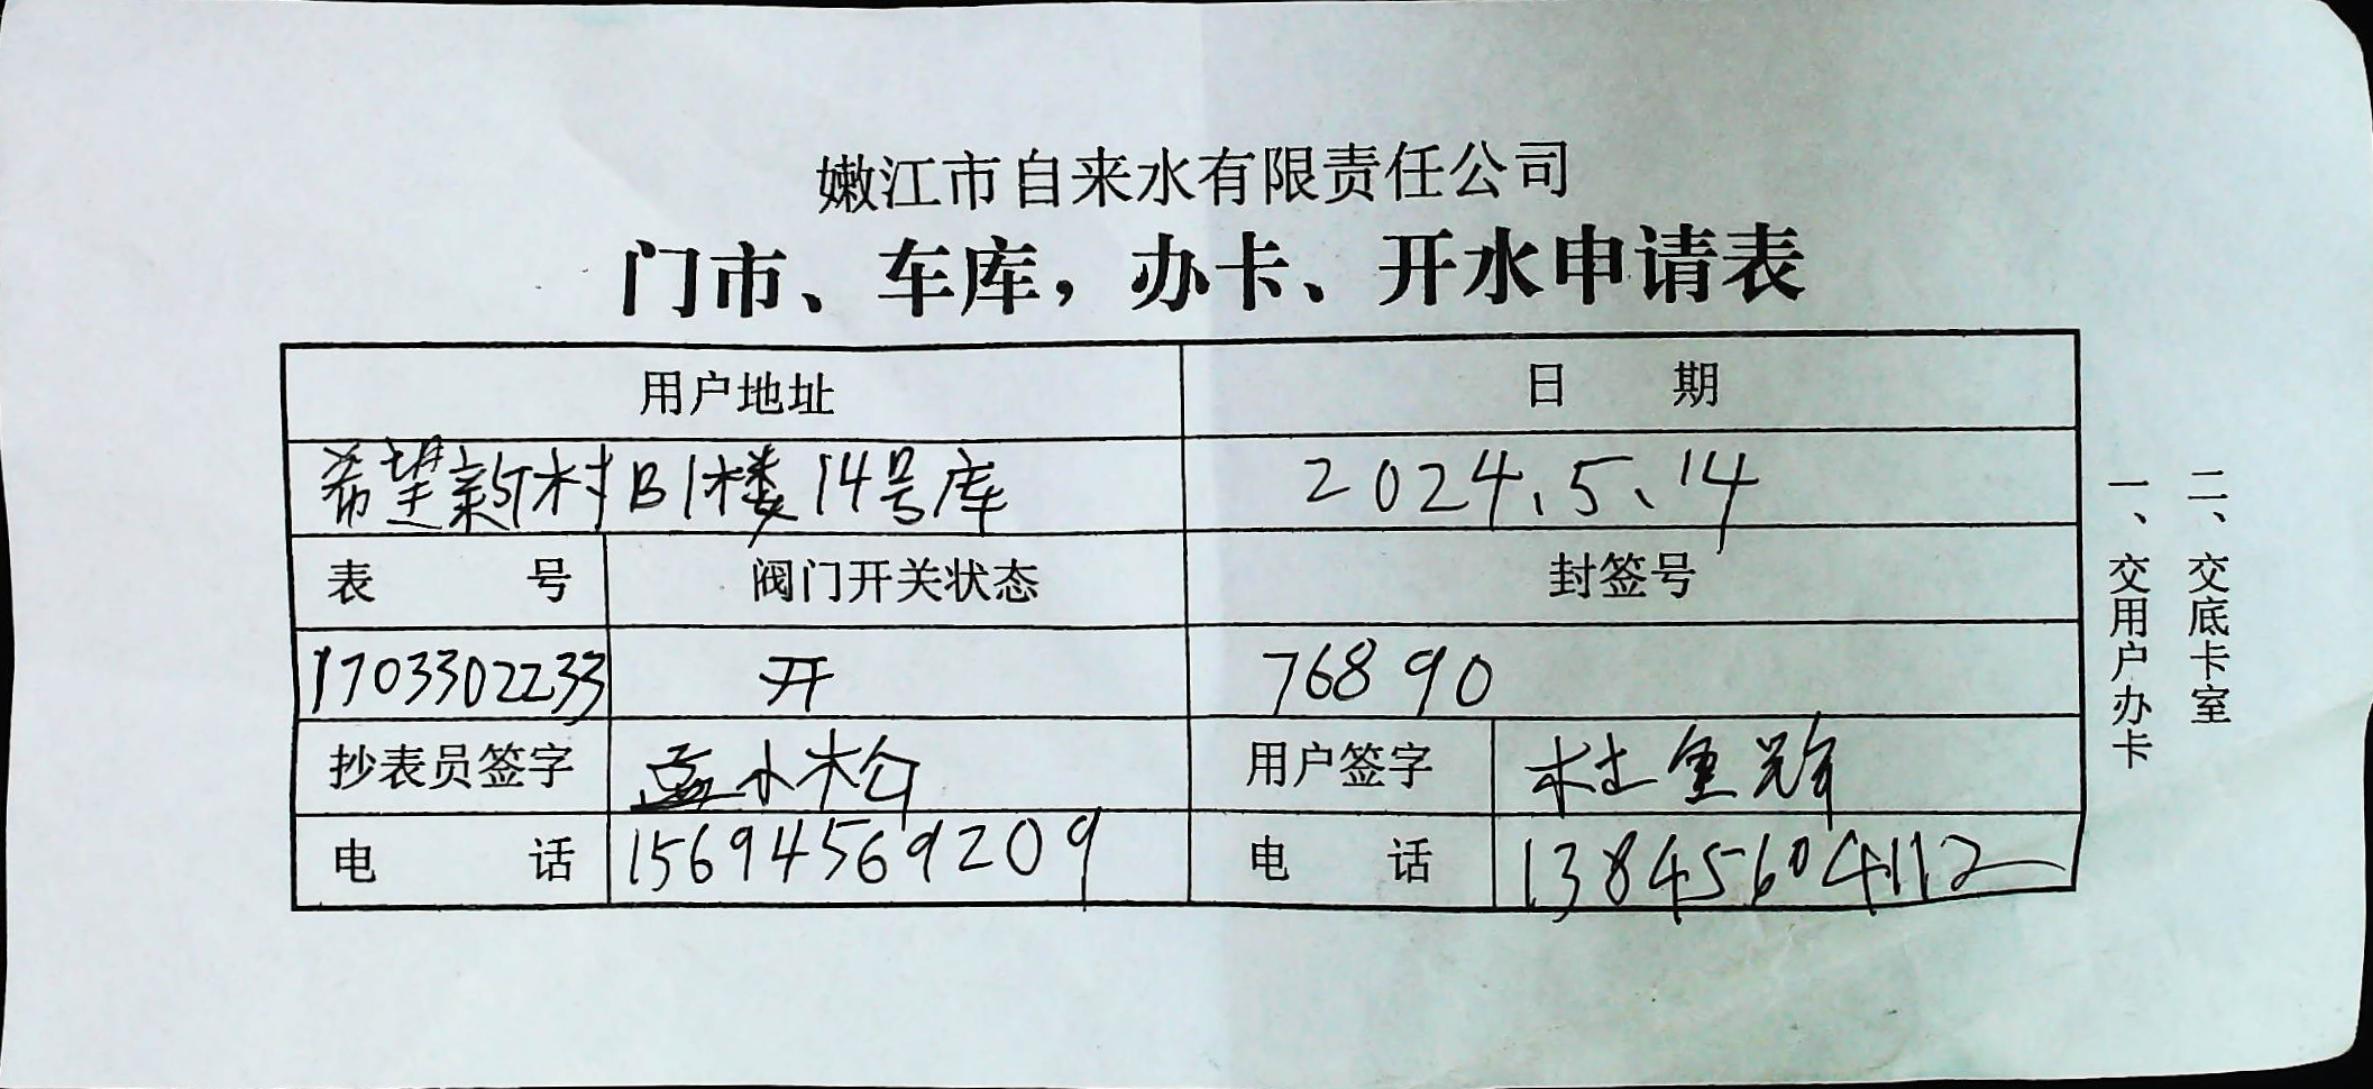 嫩江市自来水有限责任公司
门市、车库，办卡、开水申请表
用户地址 日 期
希望新村B1楼14号库 2024、5、14
表 号 阀门开关状态 封签号
1703302233 开 76890
抄表员签字 孟小松 用户签字 杜
电 话 15694569209 电 话 13845604112
一、交用户办卡
二、交底卡室